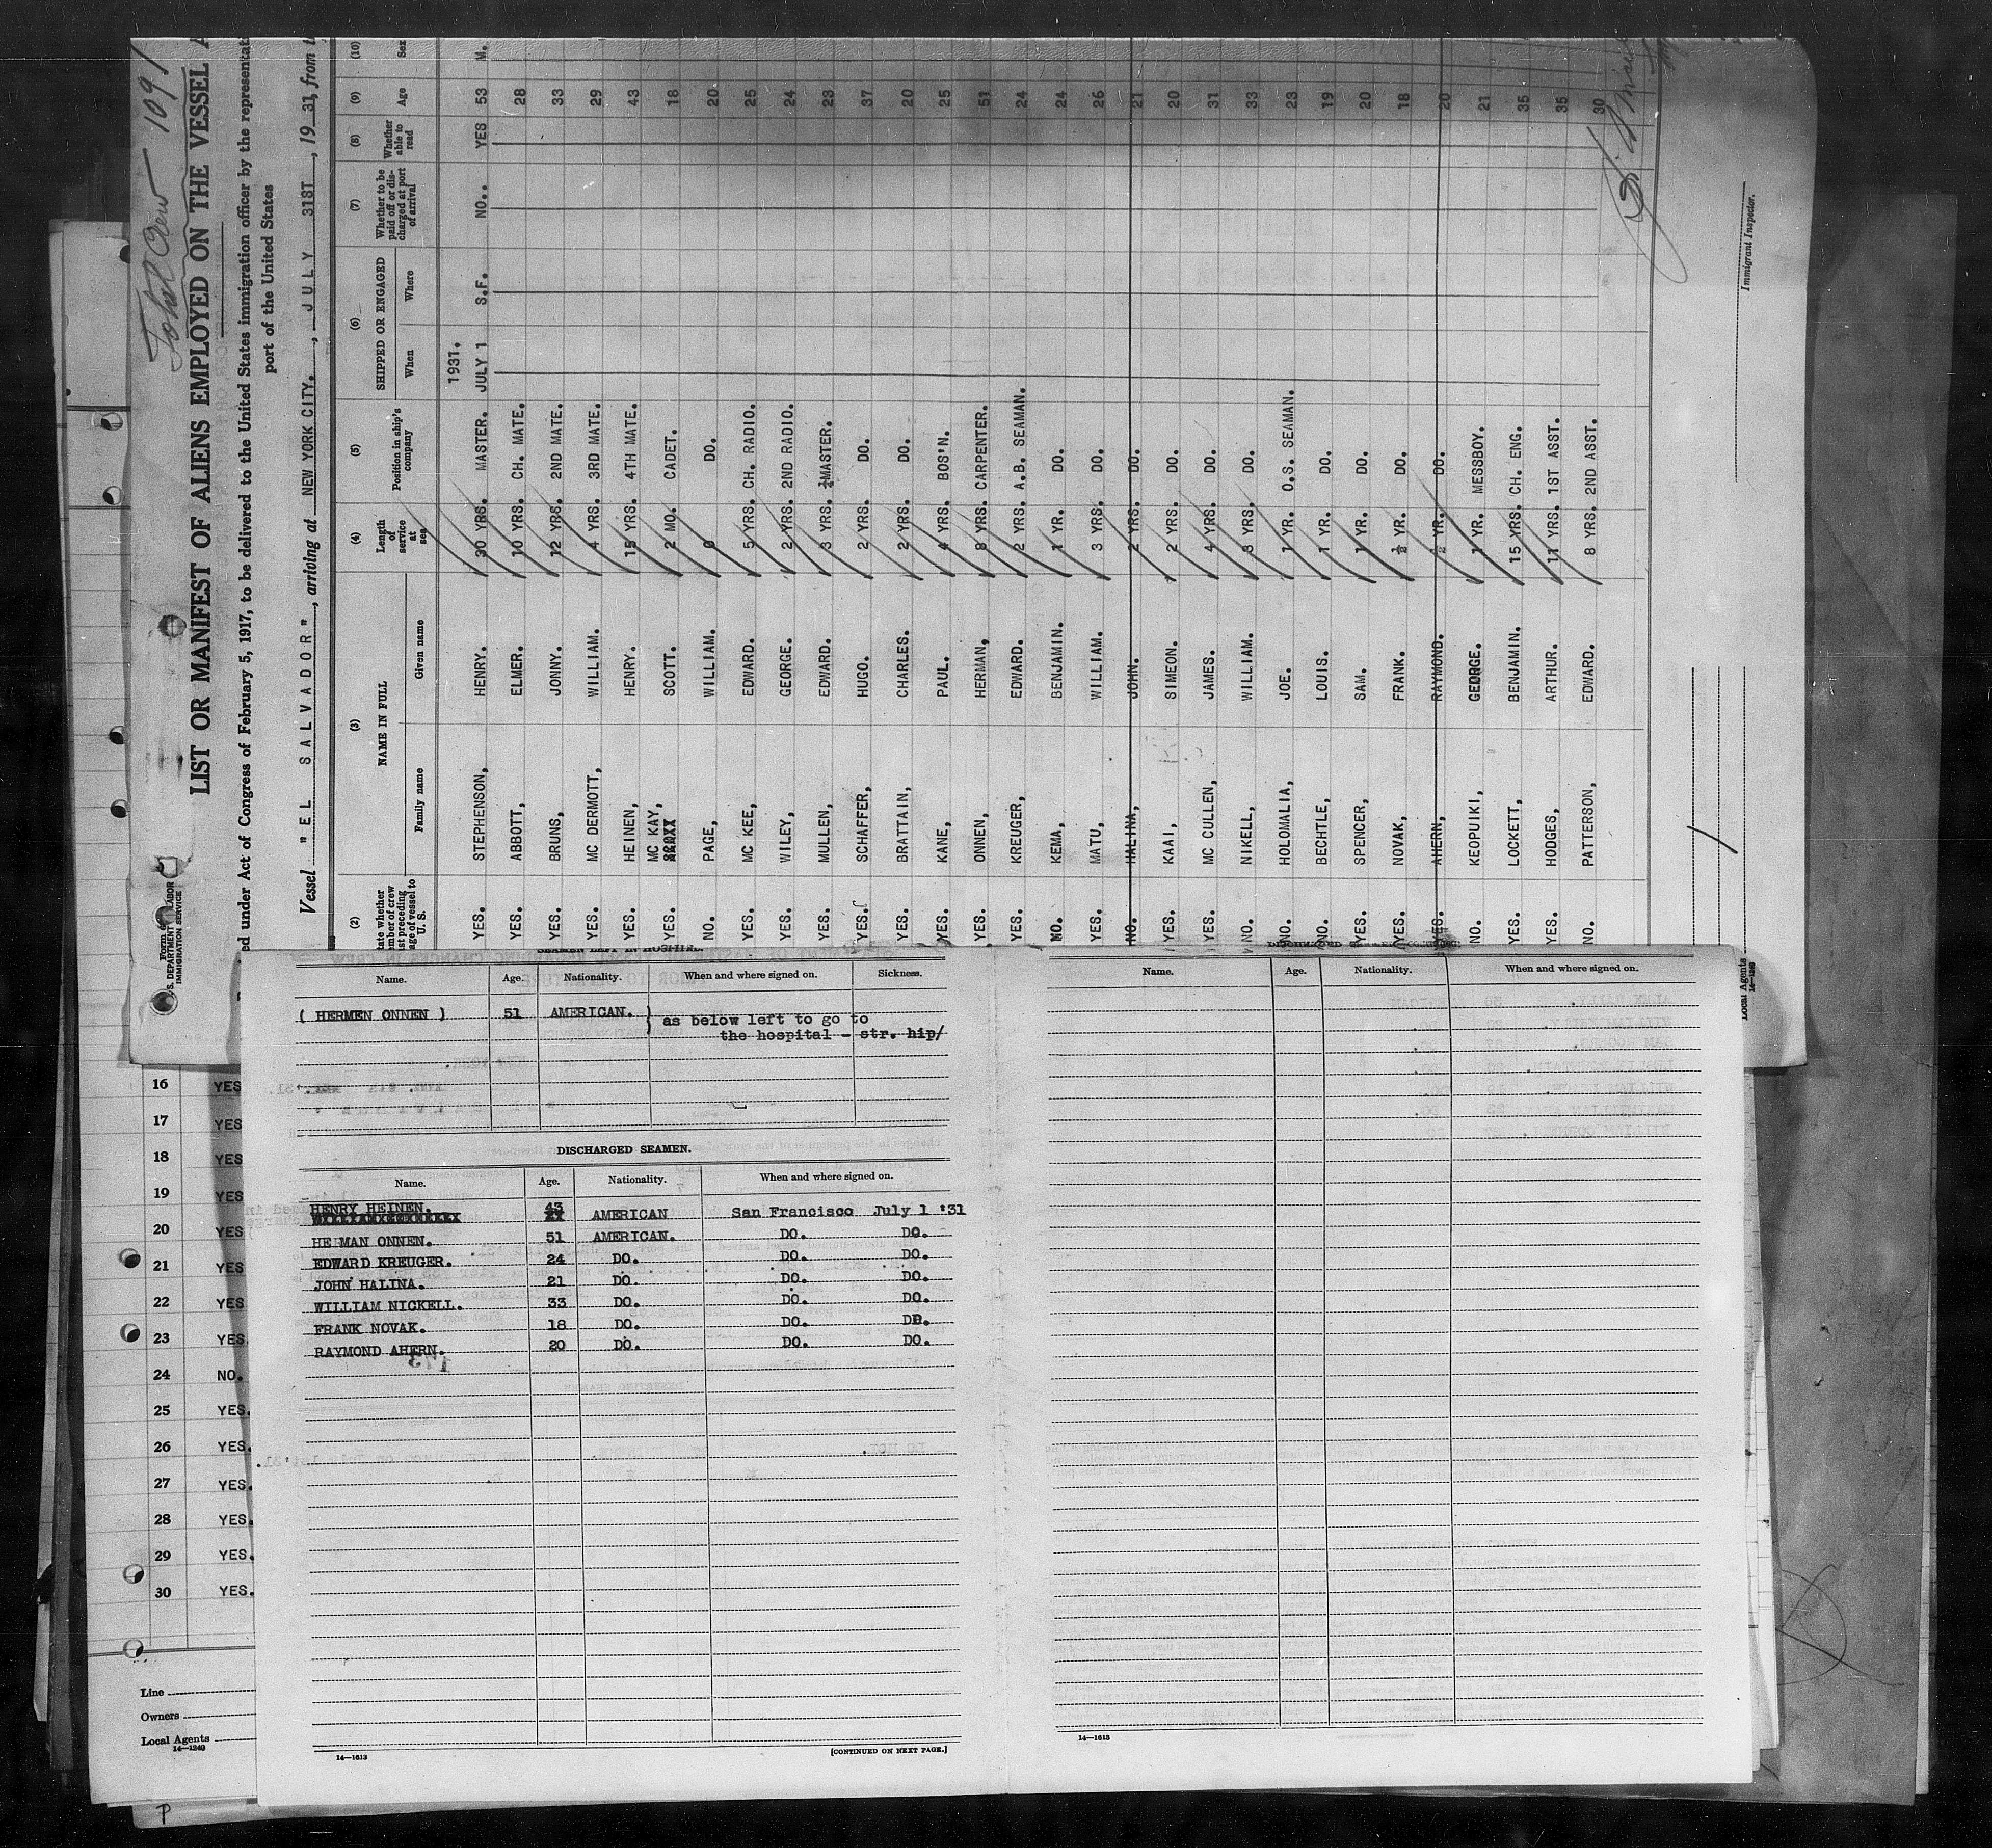 Total Crew — 109
Form 680
S. DEPARTMENT OF LABOR
IMMIGRATION SERVICE
LIST OR MANIFEST OF ALIENS EMPLOYED ON THE VESSEL A
ed under Act of Congress of February 5, 1917, to be delivered to the United States immigration officer by the representati
port of the United States
Vessel "EL SALVADOR", arriving at NEW YORK CITY., JULY 31ST, 1931, from t
(2) (3) (4) (5) (6) (7) (8) (9) (10)
NAME IN FULL
Family name Given name
Length of service at sea
Position in ship's company
SHIPPED OR ENGAGED
When Where
Whether to be paid off or discharged at port of arrival
Whether able to read
Age
Sex
1931.
YES. STEPHENSON, HENRY. 30 YRS. MASTER. JULY 1 S.F. NO.. YES 53 M.
YES. ABBOTT, ELMER. 10 YRS. CH. MATE. 28
YES. BRUNS, JONNY. 12 YRS. 2ND MATE. 33
YES. MC DERMOTT, WILLIAM. 4 YRS. 3RD MATE. 29
YES. HEINEN, HENRY. 15 YRS. 4TH MATE. 43
YES. MC KAY, SCOTT. 2 MO. CADET. 18
NO. PAGE, WILLIAM. 0 DO. 20
YES. MC KEE, EDWARD. 5 YRS. CH. RADIO. 25
YES. WILEY, GEORGE. 2 YRS. 2ND RADIO. 24
YES. MULLEN, EDWARD. 3 YRS. ¼MASTER. 23
YES. SCHAFFER, HUGO. 2 YRS. DO. 37
YES. BRATTAIN, CHARLES. 2 YRS. DO. 20
YES. KANE, PAUL. 4 YRS. BOS'N. 25
YES. ONNEN, HERMAN, 8 YRS. CARPENTER. 51
YES. KREUGER, EDWARD. 2 YRS. A.B. SEAMAN. 24
NO. KEMA, BENJAMIN. 1 YR. DO. 24
YES. MATU, WILLIAM. 3 YRS. DO. 26
NO. HALINA, JOHN. 2 YRS. DO. 21
YES. KAAI, SIMEON. 2 YRS. DO. 20
YES. MC CULLEN, JAMES. 4 YRS. DO. 31
NO. NIKELL, WILLIAM. 8 YRS. DO. 33
NO. HOLOMALIA, JOE. 1 YR. O.S. SEAMAN. 23
NO. BECHTLE, LOUIS. 1 YR. DO. 19
YES. SPENCER, SAM. 1 YR. DO. 20
YES. NOVAK, FRANK. ½ YR. DO. 18
YES. AHERN, RAYMOND. ½ YR. DO. 20
NO. KEOPUIKI, GEORGE. 1 YR. MESSBOY. 21
YES. LOCKETT, BENJAMIN. 15 YRS. CH. ENG. 35
YES. HODGES, ARTHUR. 11 YRS. 1ST ASST. 35
NO. PATTERSON, EDWARD. 8 YRS. 2ND ASST. 30
Immigrant Inspector.
Local Agents
14—1240
Name. Age. Nationality. When and where signed on. Sickness.
( HERMEN ONNEN ) 51 AMERICAN. ) as below left to go to
) the hospital - str. hip/
DISCHARGED SEAMEN.
Name. Age. Nationality. When and where signed on.
HENRY HEINEN. 43 AMERICAN San Francisco July 1 '31
HE MAN ONNEN. 51 AMERICAN. DO. DO.
EDWARD KREUGER. 24 DO. DO. DO.
JOHN HALINA. 21 DO. DO. DO.
WILLIAM NICKELL. 33 DO. DO. DO.
FRANK NOVAK. 18 DO. DO. DO.
RAYMOND AHERN. 20 DO. DO. DO.
14—1613
[CONTINUED ON NEXT PAGE.]
Name. Age. Nationality. When and where signed on.
14—1613
16 YES
17 YES
18 YES
19 YES
20 YES
21 YES
22 YES
23 YES.
24 NO.
25 YES.
26 YES.
27 YES.
28 YES.
29 YES.
30 YES.
Line
Owners
Local Agents
14—1240
P